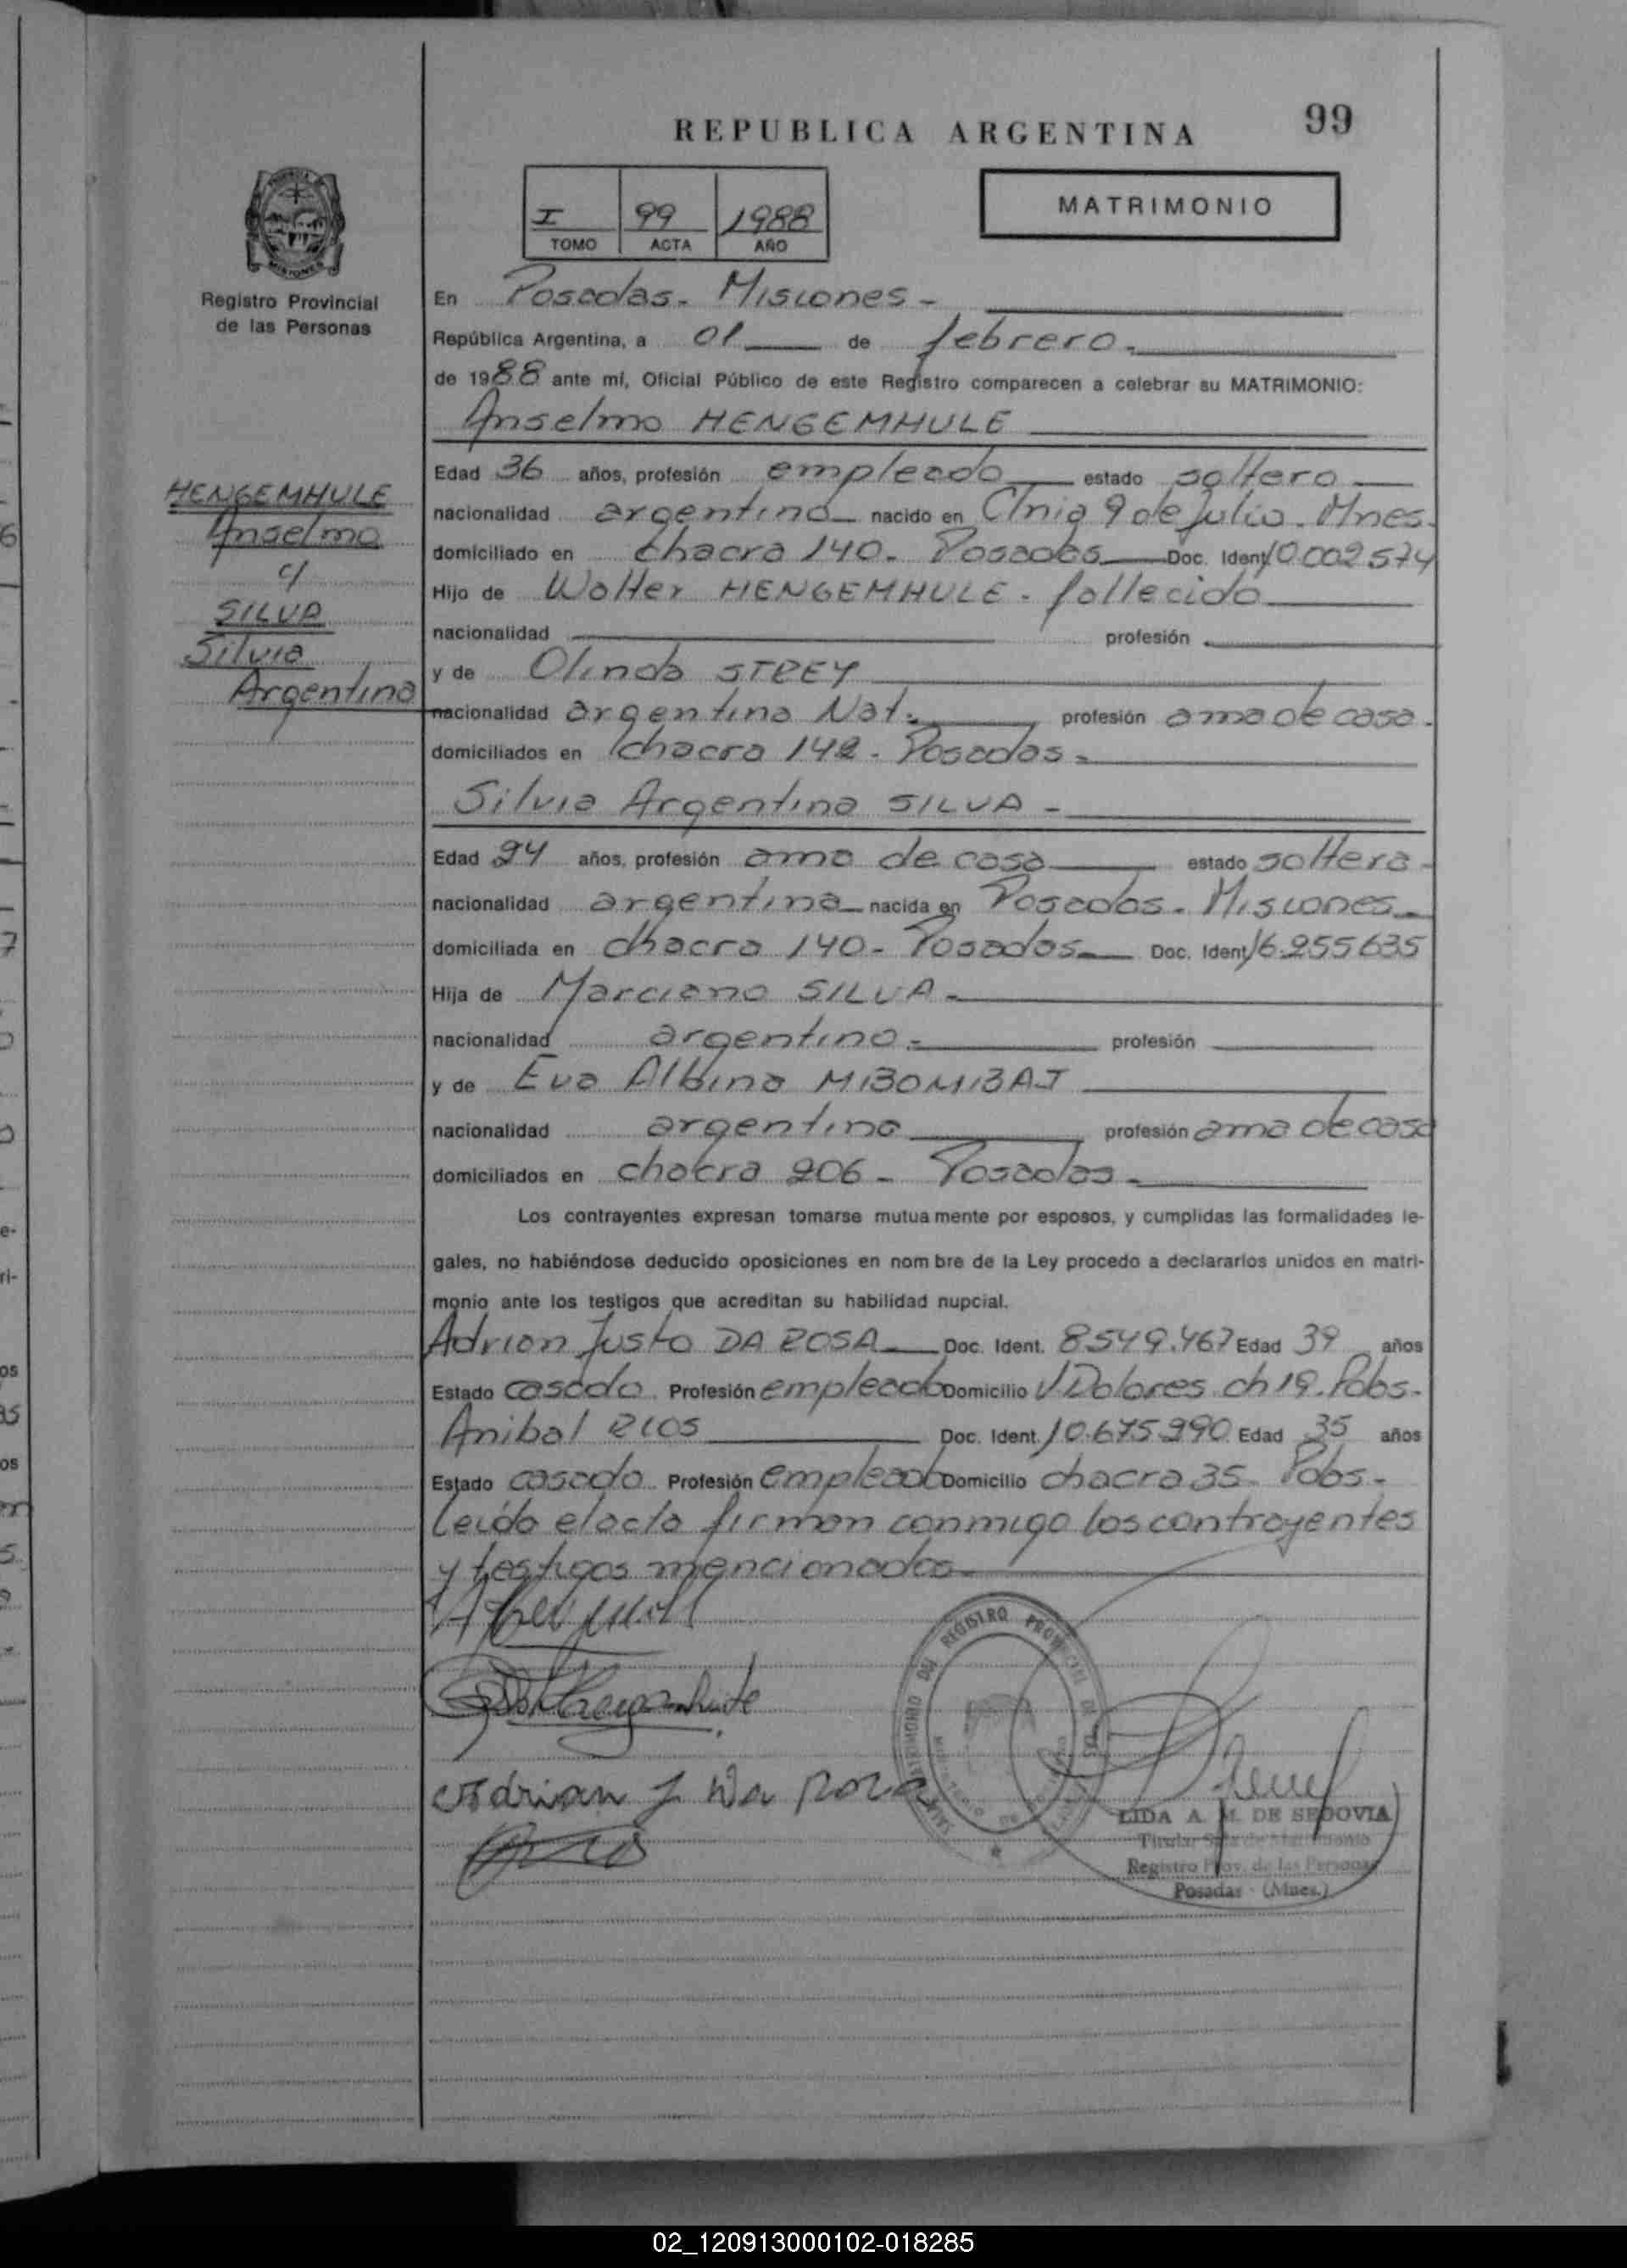 REPUBLICA ARGENTINA
99
I 99 1988
TOMO ACTA AÑO
MATRIMONIO
Registro Provincial
de las Personas
HENGEMHULE
Anselmo
c/
SILVA
Silvia
Argentina
En Posadas. Misiones -
República Argentina, a 01 de febrero.
de 1988 ante mí, Oficial Público de este Registro comparecen a celebrar su MATRIMONIO:
Anselmo HENGEMHULE
Edad 36 años, profesión empleado estado soltero
nacionalidad argentino nacido en Clnia 9 de Julio. Mnes.
domiciliado en chacra 140. Posadas Doc. Ident. 10.002574
Hijo de Walter HENGEMHULE. fallecido
nacionalidad profesión
y de Olinda STREY
nacionalidad argentina Nat. profesión ama de casa.
domiciliados en chacra 142 - Posadas -
Silvia Argentina SILVA -
Edad 24 años, profesión ama de casa estado soltera
nacionalidad argentina nacida en Posadas. Misiones
domiciliada en chacra 140 - Posadas Doc. Ident. 16.255635
Hija de Marciano SILVA -
nacionalidad argentino - profesión
y de Eva Albina
nacionalidad argentina profesión ama de casa
domiciliados en chacra 206 - Posadas -
Los contrayentes expresan tomarse mutua mente por esposos, y cumplidas las formalidades le-
gales, no habiéndose deducido oposiciones en nom bre de la Ley procedo a declararlos unidos en matri-
monio ante los testigos que acreditan su habilidad nupcial.
Adrian Justo DA ROSA Doc. Ident. 8549.467 Edad 39 años
Estado casado Profesión empleado Domicilio V Dolores ch 19. Pdas.
Anibal RIOS Doc. Ident. 10.675.990 Edad 35 años
Estado casado Profesión empleado Domicilio chacra 35. Pdas.
Leída el acta firman conmigo los contrayentes
y testigos mencionados
Adrian J Da Roza
REGISTRO PROVINCIAL DE LAS
LIDA A. M. DE SEGOVIA
Titular Sala de Matrimonio
Registro Prov. de las Personas
Posadas - (Mnes.)
02_120913000102-018285